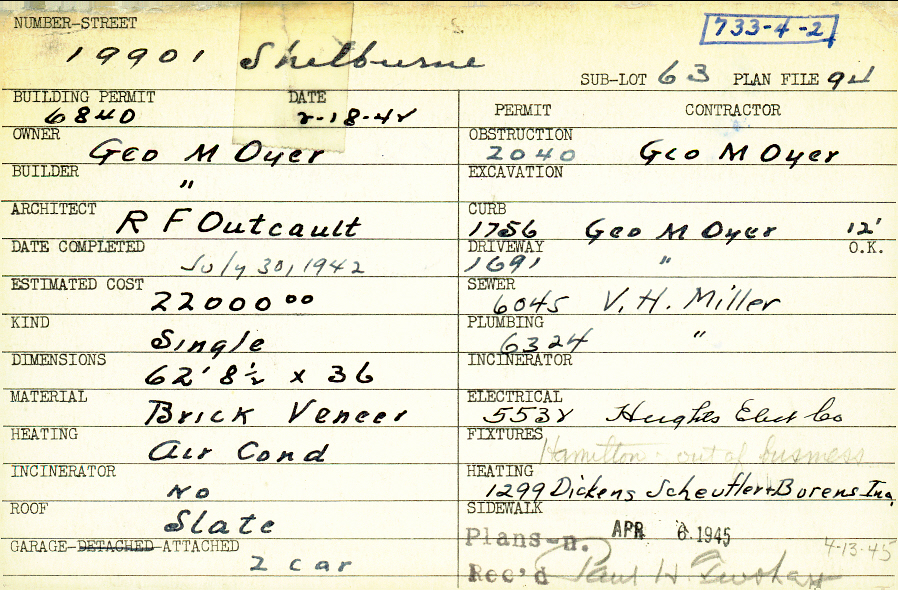 NUMBER-STREET
733-4-2
19901 Shelburne
SUB-LOT 63 PLAN FILE 94
BUILDING PERMIT DATE
6840 2-18-42
OWNER
Geo M Oyer
BUILDER
"
ARCHITECT
R F Outcault
DATE COMPLETED
July 30, 1942
ESTIMATED COST
22000 00
KIND
Single
DIMENSIONS
62' 8 1/2 x 36
MATERIAL
Brick Veneer
HEATING
Air Cond
INCINERATOR
No
ROOF
Slate
GARAGE-DETACHED-ATTACHED
2 car
PERMIT CONTRACTOR
OBSTRUCTION
2040 Geo M Oyer
EXCAVATION
CURB
1756 Geo M Oyer 12'
DRIVEWAY O.K.
1691 "
SEWER
6045 V. H. Miller
PLUMBING
6324 "
INCINERATOR
ELECTRICAL
5532 Hughes Elect Co
FIXTURES
Hamilton - out of business
HEATING
1299 Dickens Scheufler + Borens Inc.
SIDEWALK
Plans-n. APR 6 1945
4-13-45
Rec'd Paul H.